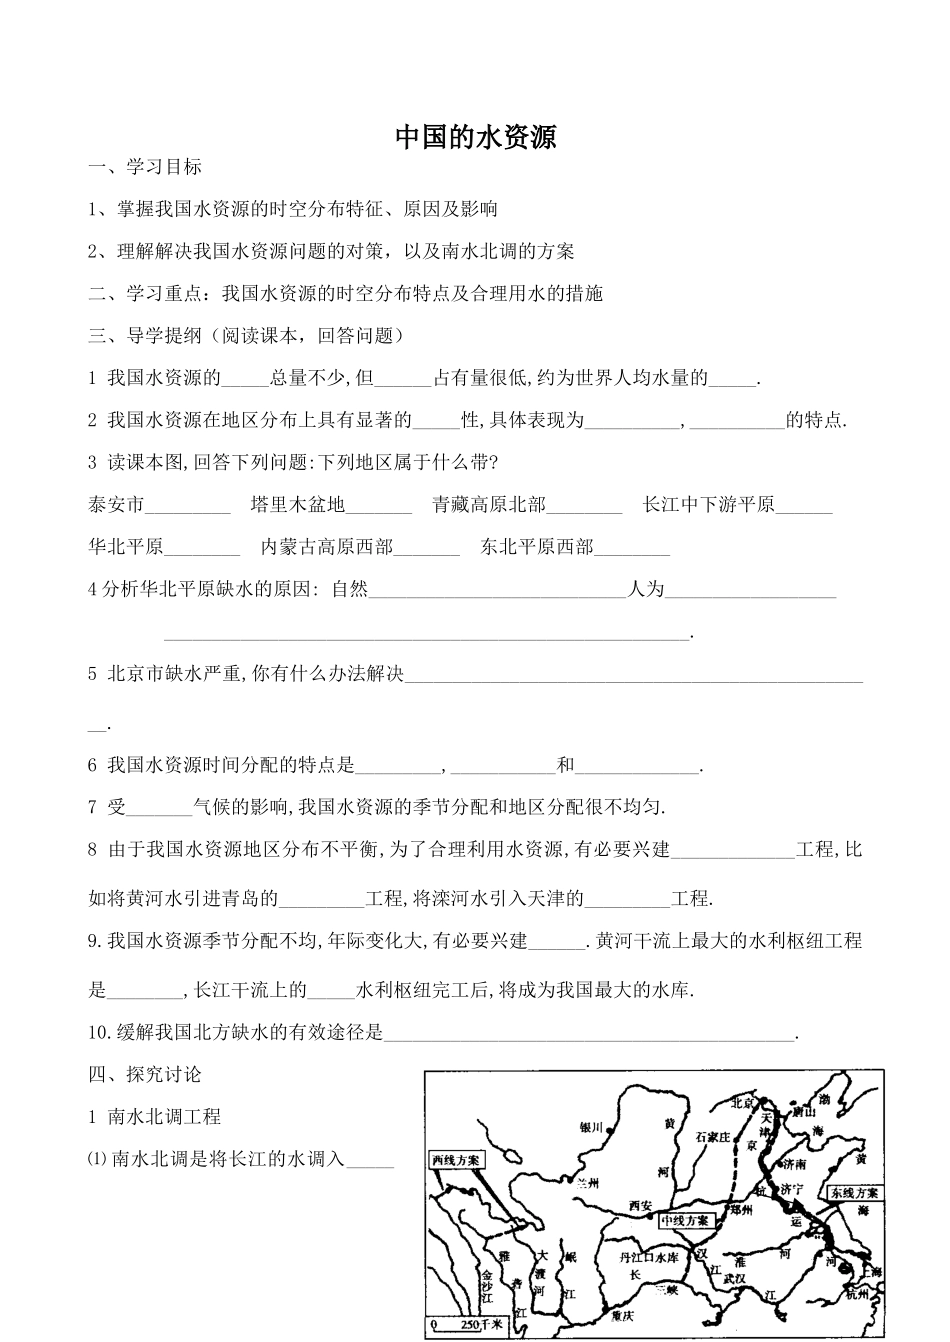 中国的水资源
一、学习目标
1、掌握我国水资源的时空分布特征、原因及影响
2、理解解决我国水资源问题的对策，以及南水北调的方案
二、学习重点：我国水资源的时空分布特点及合理用水的措施
三、导学提纲（阅读课本，回答问题）
1 我国水资源的_____总量不少,但______占有量很低,约为世界人均水量的_____.
2 我国水资源在地区分布上具有显著的_____性,具体表现为__________,__________的特点.
3 读课本图,回答下列问题:下列地区属于什么带?
泰安市_________ 塔里木盆地_______ 青藏高原北部________ 长江中下游平原______
华北平原________ 内蒙古高原西部_______ 东北平原西部________
4分析华北平原缺水的原因: 自然___________________________人为__________________
_______________________________________________________.
5 北京市缺水严重,你有什么办法解决________________________________________________
__.
6 我国水资源时间分配的特点是_________,___________和_____________.
7 受_______气候的影响,我国水资源的季节分配和地区分配很不均匀.
8 由于我国水资源地区分布不平衡,为了合理利用水资源,有必要兴建_____________工程,比
如将黄河水引进青岛的_________工程,将滦河水引入天津的_________工程.
9.我国水资源季节分配不均,年际变化大,有必要兴建______.黄河干流上最大的水利枢纽工程
是________,长江干流上的_____水利枢纽完工后,将成为我国最大的水库.
10.缓解我国北方缺水的有效途径是___________________________________________.
四、探究讨论
1 南水北调工程
⑴南水北调是将长江的水调入_____
北京
天津
唐山
渤海
银川
黄河
石家庄
京杭运河
济南
黄海
西线方案
兰州
济宁
东线方案
西安
郑州
中线方案
雅砻江
大渡河
岷江
丹江口水库
汉江
淮河
金沙江
长江
武汉
三峡
上海
杭州
重庆
0 250千米